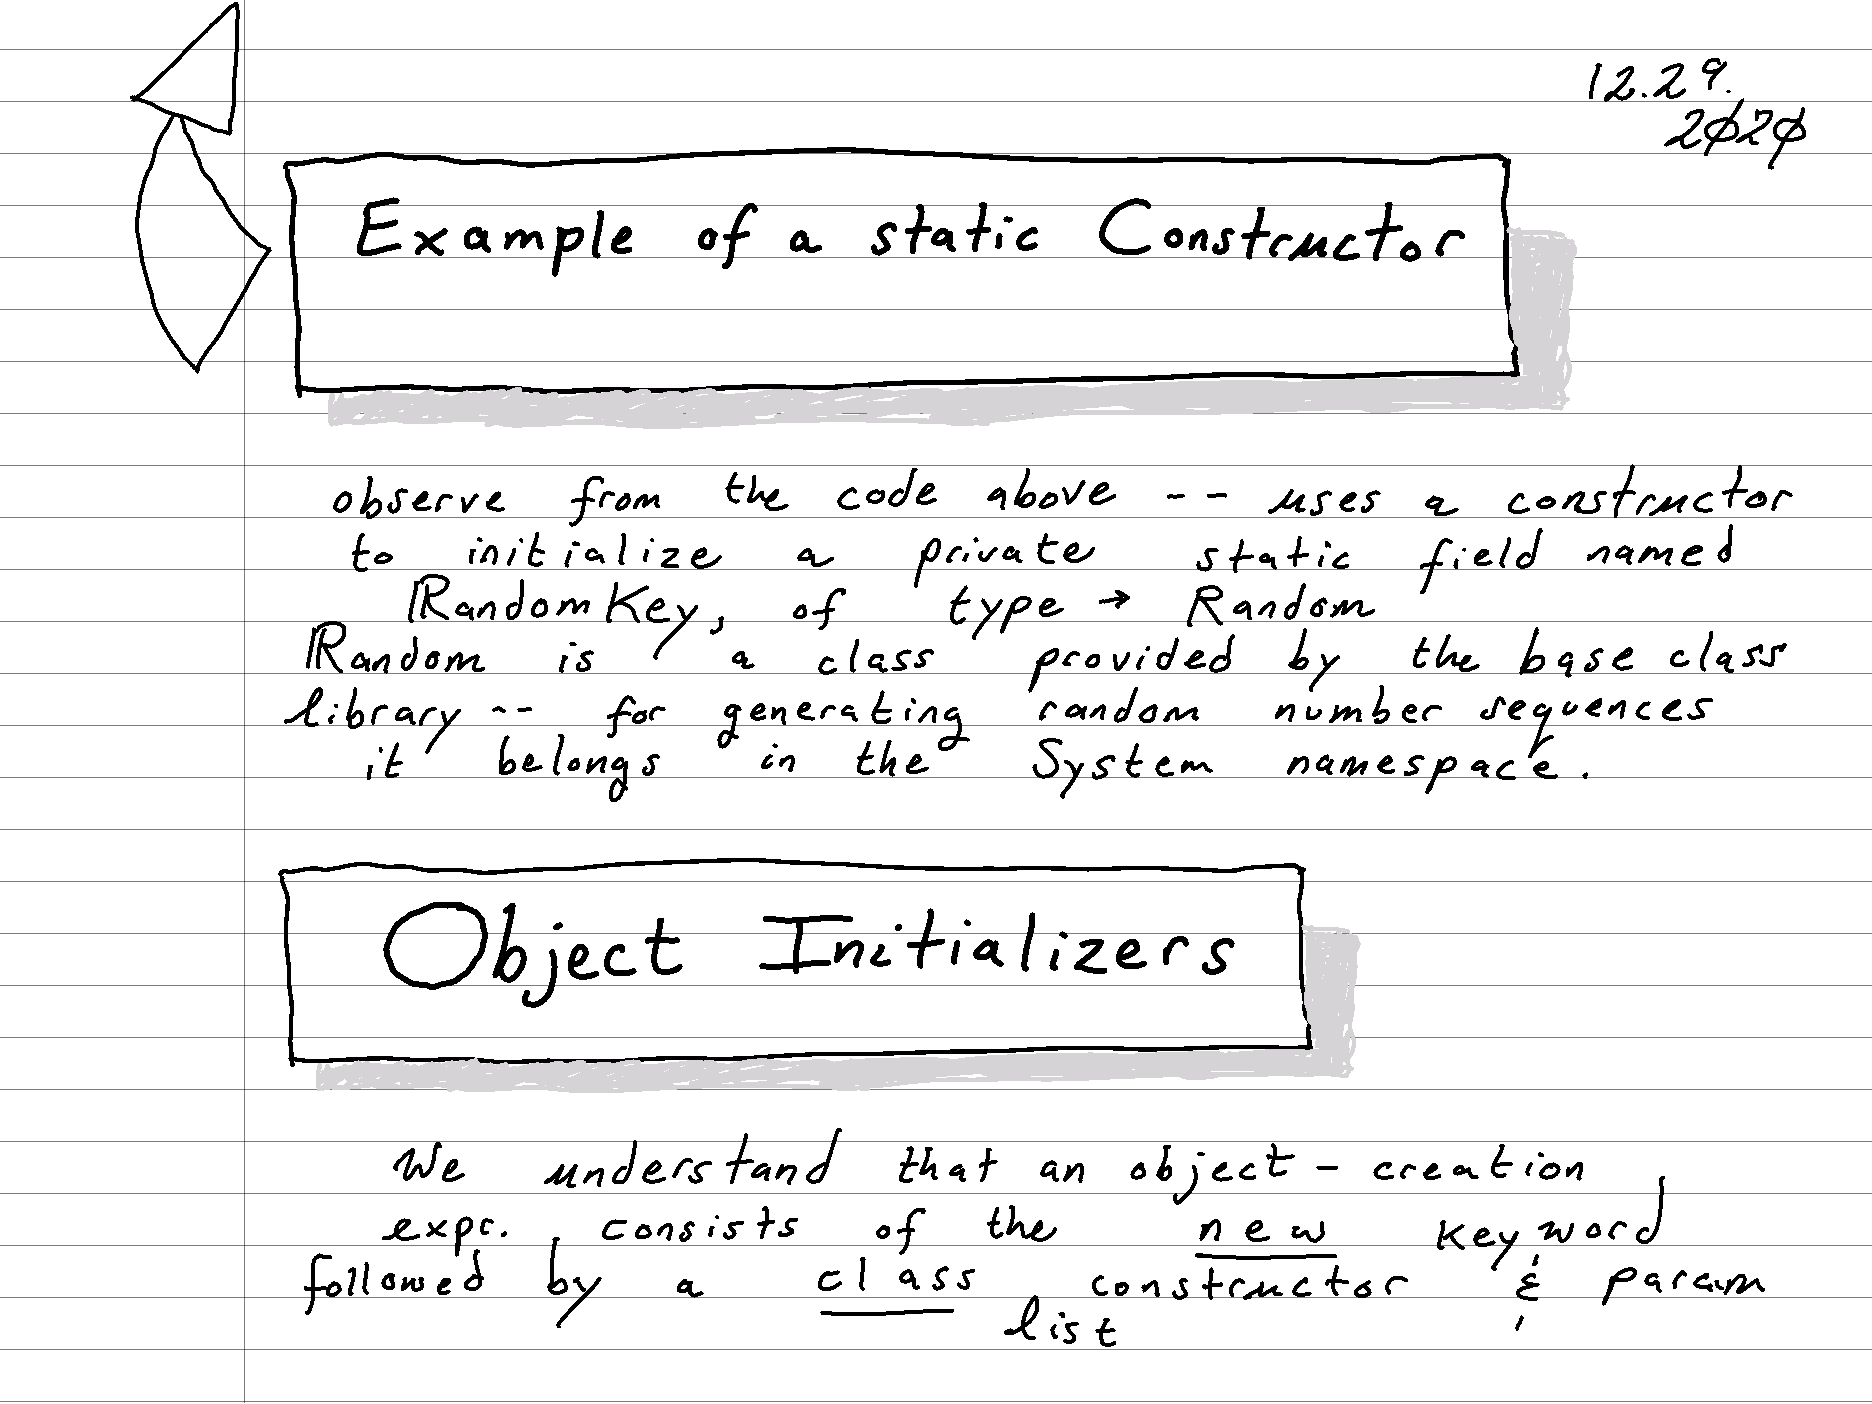 12.29.
2020
Example of a static Constructor
observe from the code above -- uses a constructor
to initialize a private static field named
RandomKey, of type → Random
Random is a class provided by the base class
library -- for generating random number sequences
it belongs in the System namespace.
Object Initializers
We understand that an object - creation
expr. consists of the new keyword
followed by a class constructor & param
list